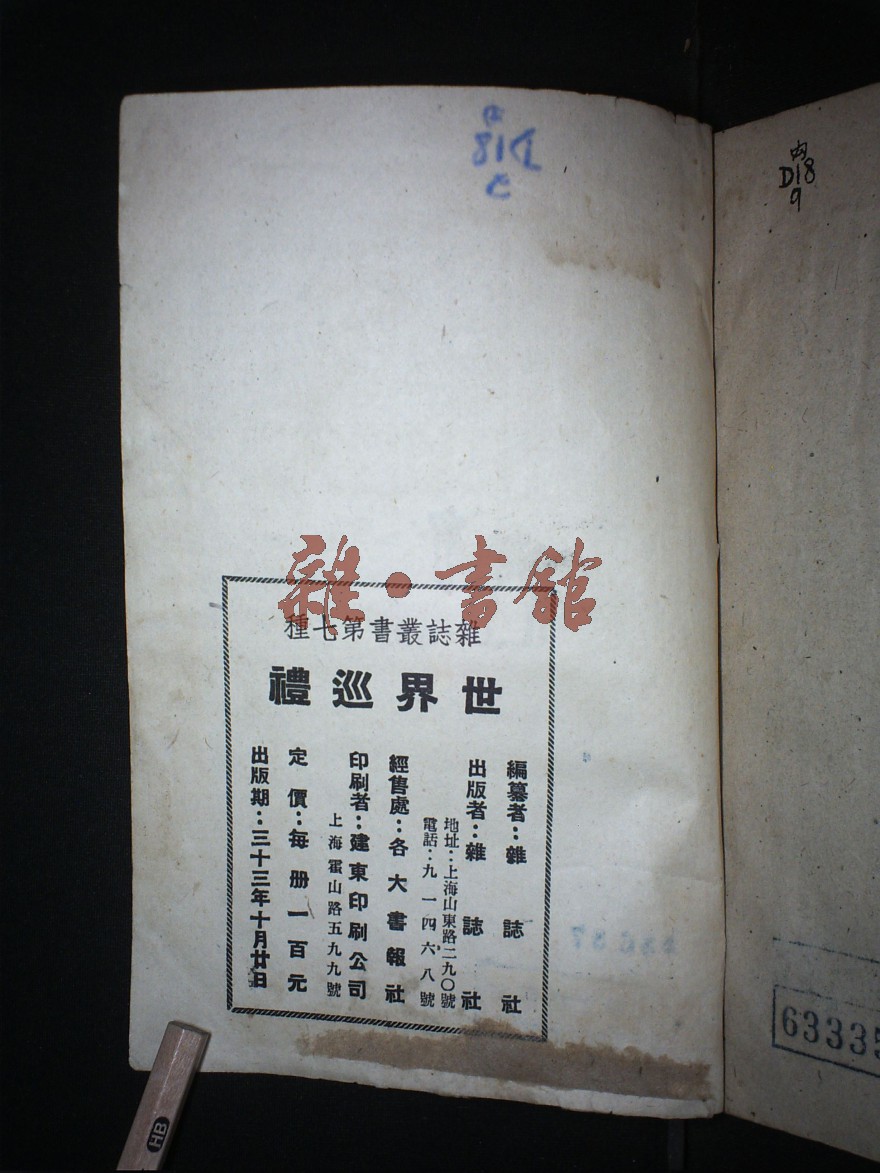 雜·書館
雜誌叢書第七種
世界巡禮
編纂者：雜誌社
出版者：雜誌社
地址：上海山東路二九〇號
電話：九一四六八號
經售處：各大書報社
印刷者：建東印刷公司
上海霍山路五九九號
定價：每册一百元
出版期：三十三年十月廿日
内
D18
9
HB